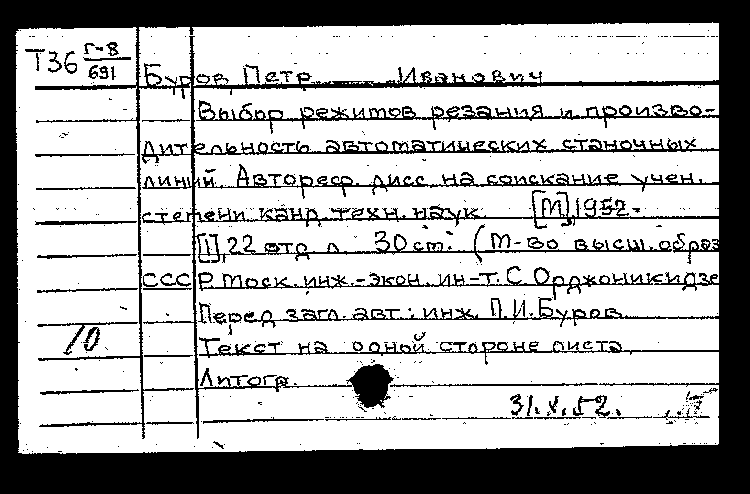 Т36 Г-8
691
Буров, Петр Иванович
Выбор режимов резания и произво-
дительность автоматических станочных
линий. Автореф. дисс. на соискание учен.
степени канд. техн. наук. [М], 1952.
[1], 22 отд. л. 30 см. (М-во высш. образ
СССР. Моск. инж.-экон. ин-т. С. Орджоникидзе
Перед загл. авт.: инж. П.И. Буров
Текст на одной стороне листа.
10
Литогр.
31.X.52.